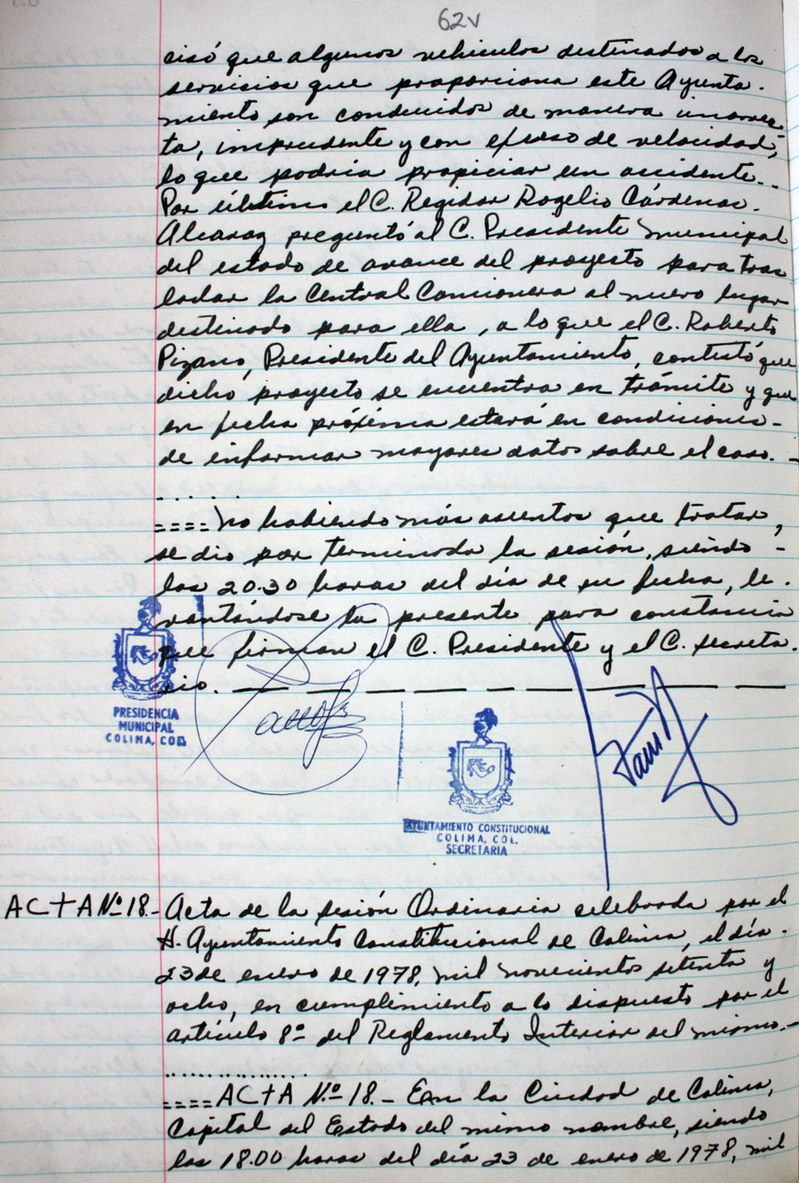 62v
cisó que algunos vehículos destinados a los
servicios que proporciona este Ayunta-
miento son conducidos de manera incorrec-
ta, imprudente y con exceso de velocidad,
lo que podría propiciar un accidente..
Por último el C. Regidor Rogelio Cárdenas
Alcaraz preguntó al C. Presidente Municipal
del estado de avance del proyecto para tras
ladar la Central Camionera al nuevo lugar
destinado para ella, a lo que el C. Roberto
Pizano, Presidente del Ayuntamiento, contestó que
dicho proyecto se encuentra en trámite y que
en fecha próxima estará en condiciones-
de informar mayores datos sobre el caso.-
......
==== No habiendo más asuntos que tratar,
se dio por terminada la sesión, siendo -
las 20.30 horas del día de su fecha, le-
vantándose la presente para constancia
que firman el C. Presidente y el C. Secreta-
rio.
PRESIDENCIA
MUNICIPAL
COLIMA, COL
AYUNTAMIENTO CONSTITUCIONAL
COLIMA, COL.
SECRETARIA
ACTA Nº 18.- Acta de la sesión Ordinaria celebrada por el
H. Ayuntamiento Constitucional de Colima, el día-
23 de enero de 1978, mil novecientos setenta y
ocho, en cumplimiento a lo dispuesto por el
artículo 8º del Reglamento Interior del mismo.-
...............
==== ACTA N.º 18.- En la Ciudad de Colima,
Capital del Estado del mismo nombre, siendo
las 18.00 horas del día 23 de enero de 1978, mil